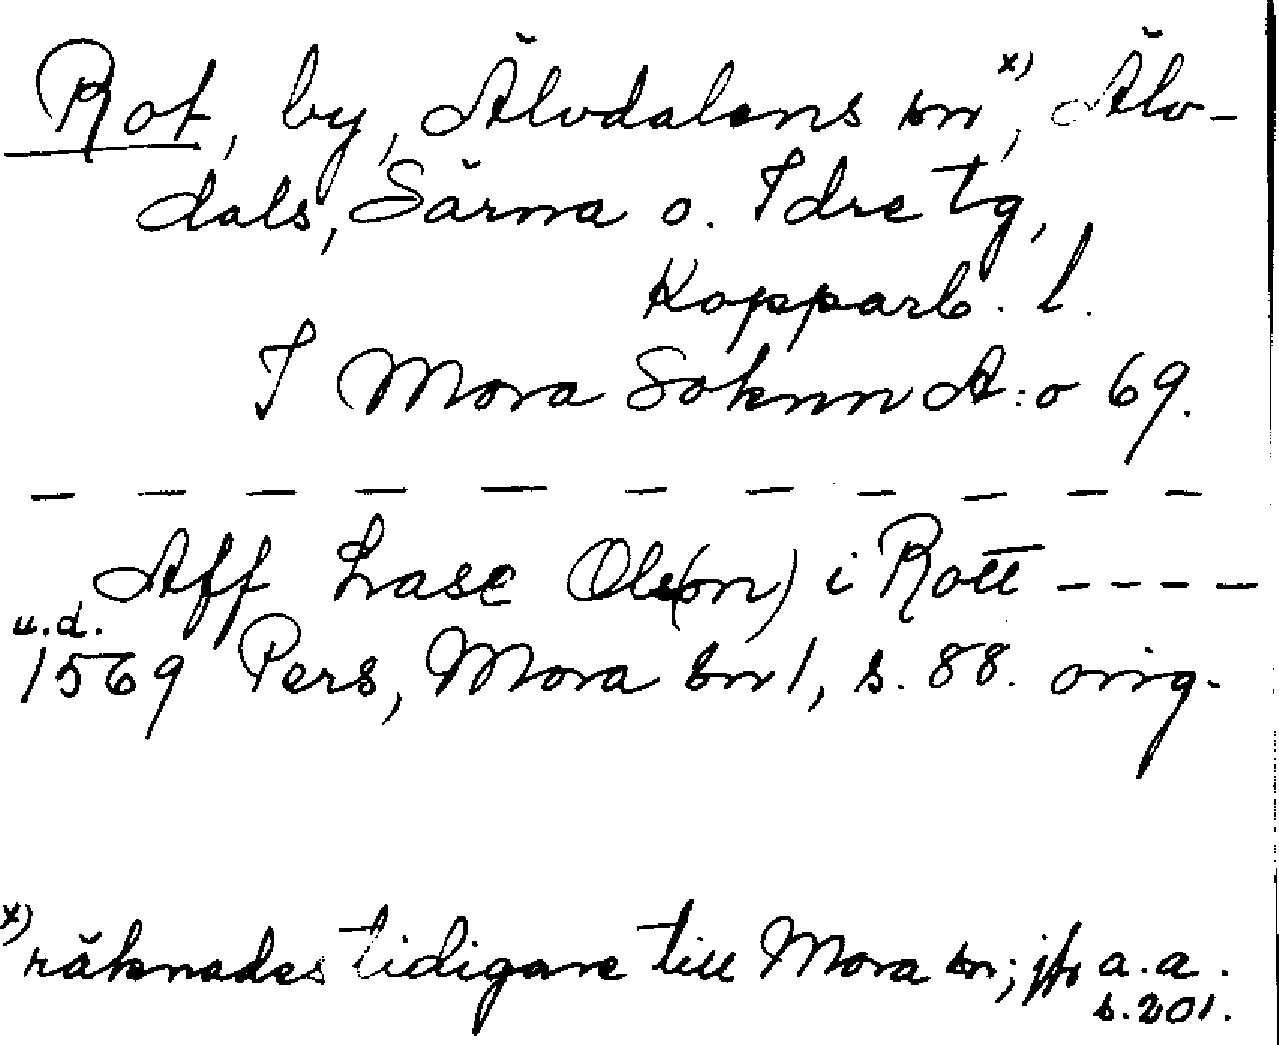 Rot, by, Älvdalens sn x), Älv-
dals, Särna o. Idre tg,
Kopparb. l.
I Mora Soknn A:o 69.
— — — — — — — — — — —
Aff Lasse Ols(on) i Rott - - - -
u.d.
1569 Pers, Mora sn 1, s. 88. orig.
x) räknades tidigare till Mora sn; jfr a.a.
s. 201.